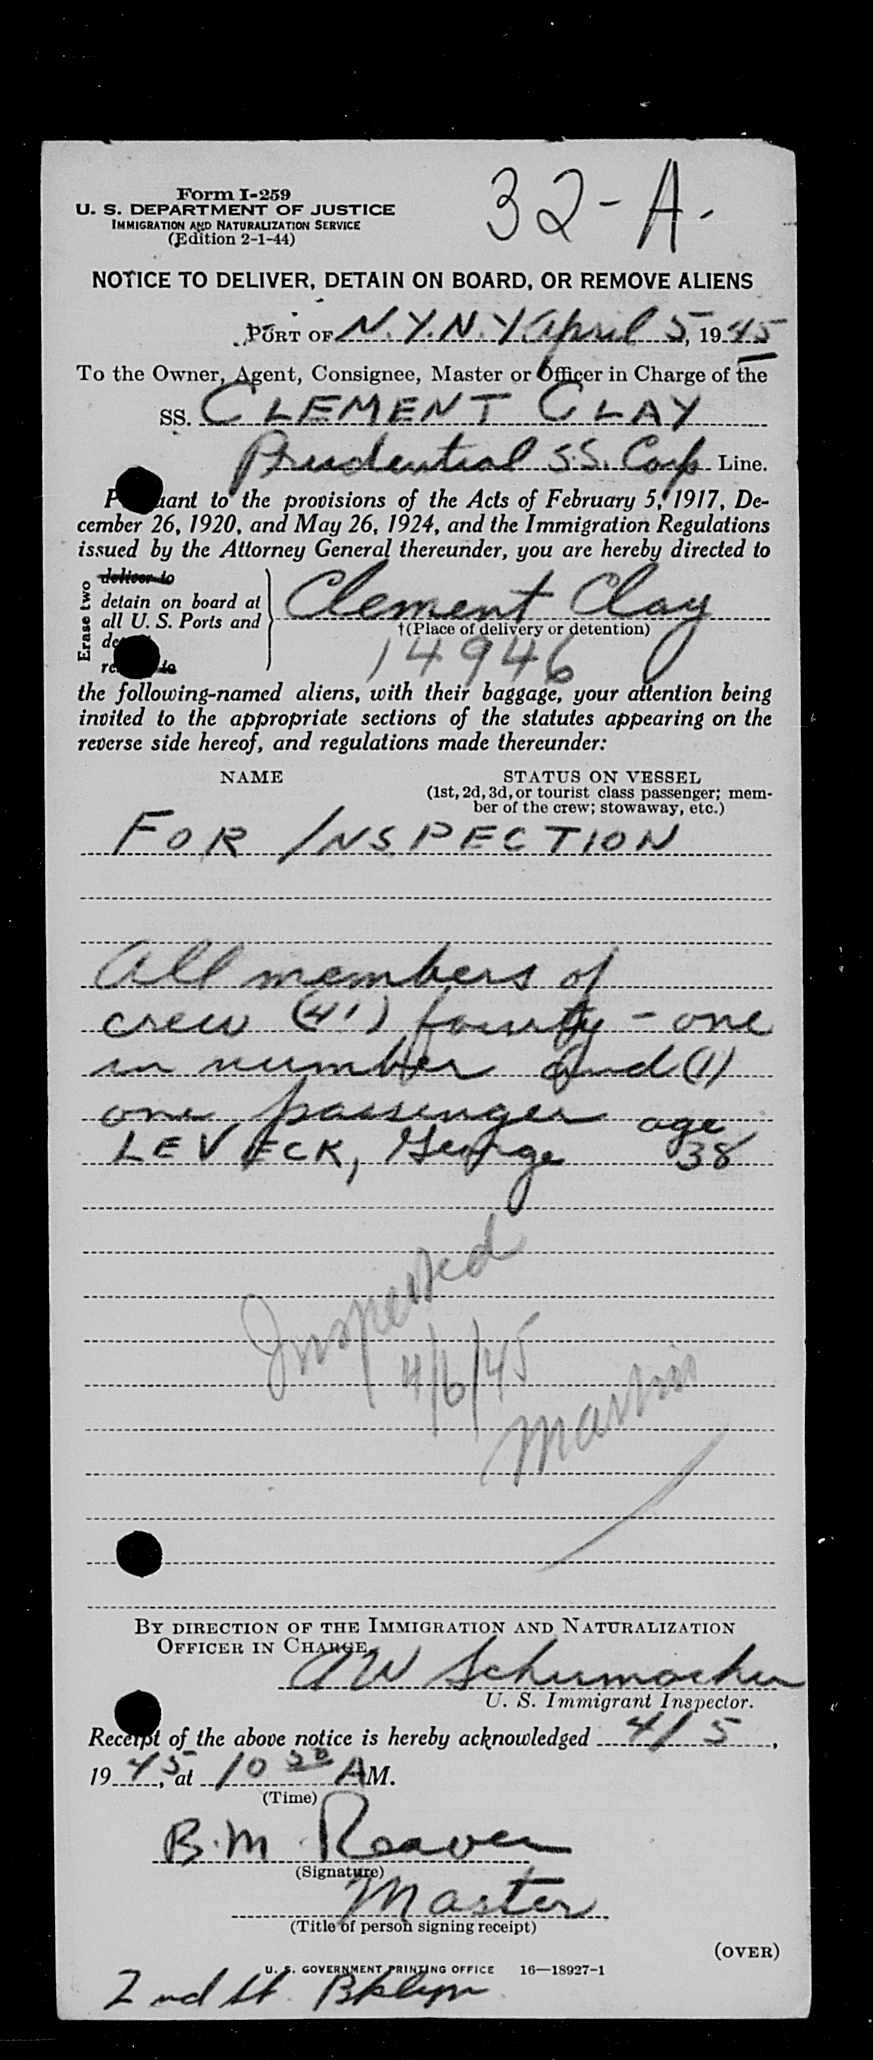 Form I-259
32-A.
U. S. DEPARTMENT OF JUSTICE
IMMIGRATION AND NATURALIZATION SERVICE
(Edition 2-1-44)
NOTICE TO DELIVER, DETAIN ON BOARD, OR REMOVE ALIENS
PORT OF N.Y.N.Y April 5, 1945
To the Owner, Agent, Consignee, Master or Officer in Charge of the
SS. CLEMENT CLAY
Prudential S.S. Corp Line.
Pursuant to the provisions of the Acts of February 5, 1917, De-
cember 26, 1920, and May 26, 1924, and the Immigration Regulations
issued by the Attorney General thereunder, you are hereby directed to
Erase two
deliver to
detain on board at
all U. S. Ports and
Clement Clay
†(Place of delivery or detention)
14946
the following-named aliens, with their baggage, your attention being
invited to the appropriate sections of the statutes appearing on the
reverse side hereof, and regulations made thereunder:
NAME STATUS ON VESSEL
(1st, 2d, 3d, or tourist class passenger; mem-
ber of the crew; stowaway, etc.)
FOR INSPECTION
All members of
crew (41) fourty-one
in number and (1)
one passenger age
LEVECK, George 38
Inspected
4/6/45
Martin
BY DIRECTION OF THE IMMIGRATION AND NATURALIZATION
OFFICER IN CHARGE
Schumacher
U. S. Immigrant Inspector.
Receipt of the above notice is hereby acknowledged 4/5,
1945, at 10 AM.
(Time)
B. M. Reaver
(Signature)
Master
(Title of person signing receipt)
(OVER)
U. S. GOVERNMENT PRINTING OFFICE 16—18927-1
2nd St. Bklyn